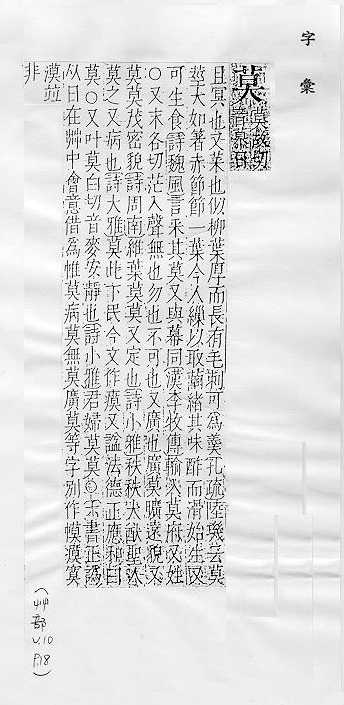 字彙
莫 莫故切音慕日
且冥也又菜也似柳葉厚而長有毛刺可為羹孔疏陸璣云莫
莖大如箸赤節節一葉今人繅以取繭緒其味酢而滑始生又
可生食詩魏風言采其莫又與幕同漢李牧傳輸入莫府又姓
○又末各切茫入聲無也勿也不可也又廣也廣莫曠遠貌又
莫莫茂密貌詩周南維葉莫莫又定也詩小雅秩秩大猷聖人
莫之又病也詩大雅莫此下民今文作瘼又謚法德正應和曰
莫○又叶莫白切音麥安靜也詩小雅君婦莫莫◎六書正譌
从日在茻中會意借為惟莫病莫無莫廣莫等字別作嗼瘼寞
漠竝
非
(艸部
V.10
P.18)